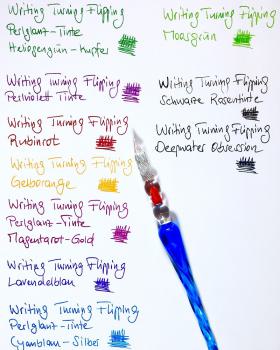 Writing Turning Flipping
Perlglanz-Tinte
Heliosgrün-Kupfer
Writing Turning Flipping
Perlviolett Tinte
Writing Turning Flipping
Rubinrot
Writing Turning Flipping
Gelborange
Writing Turning Flipping
Perlglanz-Tinte
Magentarot-Gold
Writing Turning Flipping
Lavendelblau
Writing Turning Flipping
Perlglanz-Tinte
Cyanblau-Silber
Writing Turning Flipping
Moosgrün
Writing Turning Flipping
Schwarze Rosentinte
Writing Turning Flipping
Deepwater Obsession